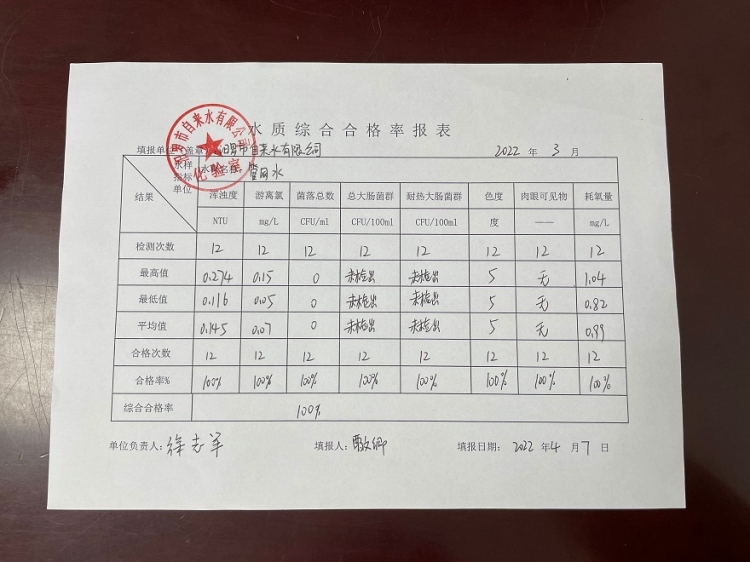 水质综合合格率报表
汨罗市自来水有限公司
化验室
填报单位（盖章）：汨罗市自来水有限公司 2022 年 3 月
水样名称：管网水
指标
单位
结果
浑浊度 游离氯 菌落总数 总大肠菌群 耐热大肠菌群 色度 肉眼可见物 耗氧量
NTU mg/L CFU/ml CFU/100ml CFU/100ml 度 —— mg/L
检测次数 12 12 12 12 12 12 12 12
最高值 0.274 0.15 0 未检出 未检出 5 无 1.04
最低值 0.116 0.05 0 未检出 未检出 5 无 0.82
平均值 0.145 0.07 0 未检出 未检出 5 无 0.99
合格次数 12 12 12 12 12 12 12 12
合格率% 100% 100% 100% 100% 100% 100% 100% 100%
综合合格率 100%
单位负责人：徐志军 填报人： 填报日期： 2022 年 4 月 7 日